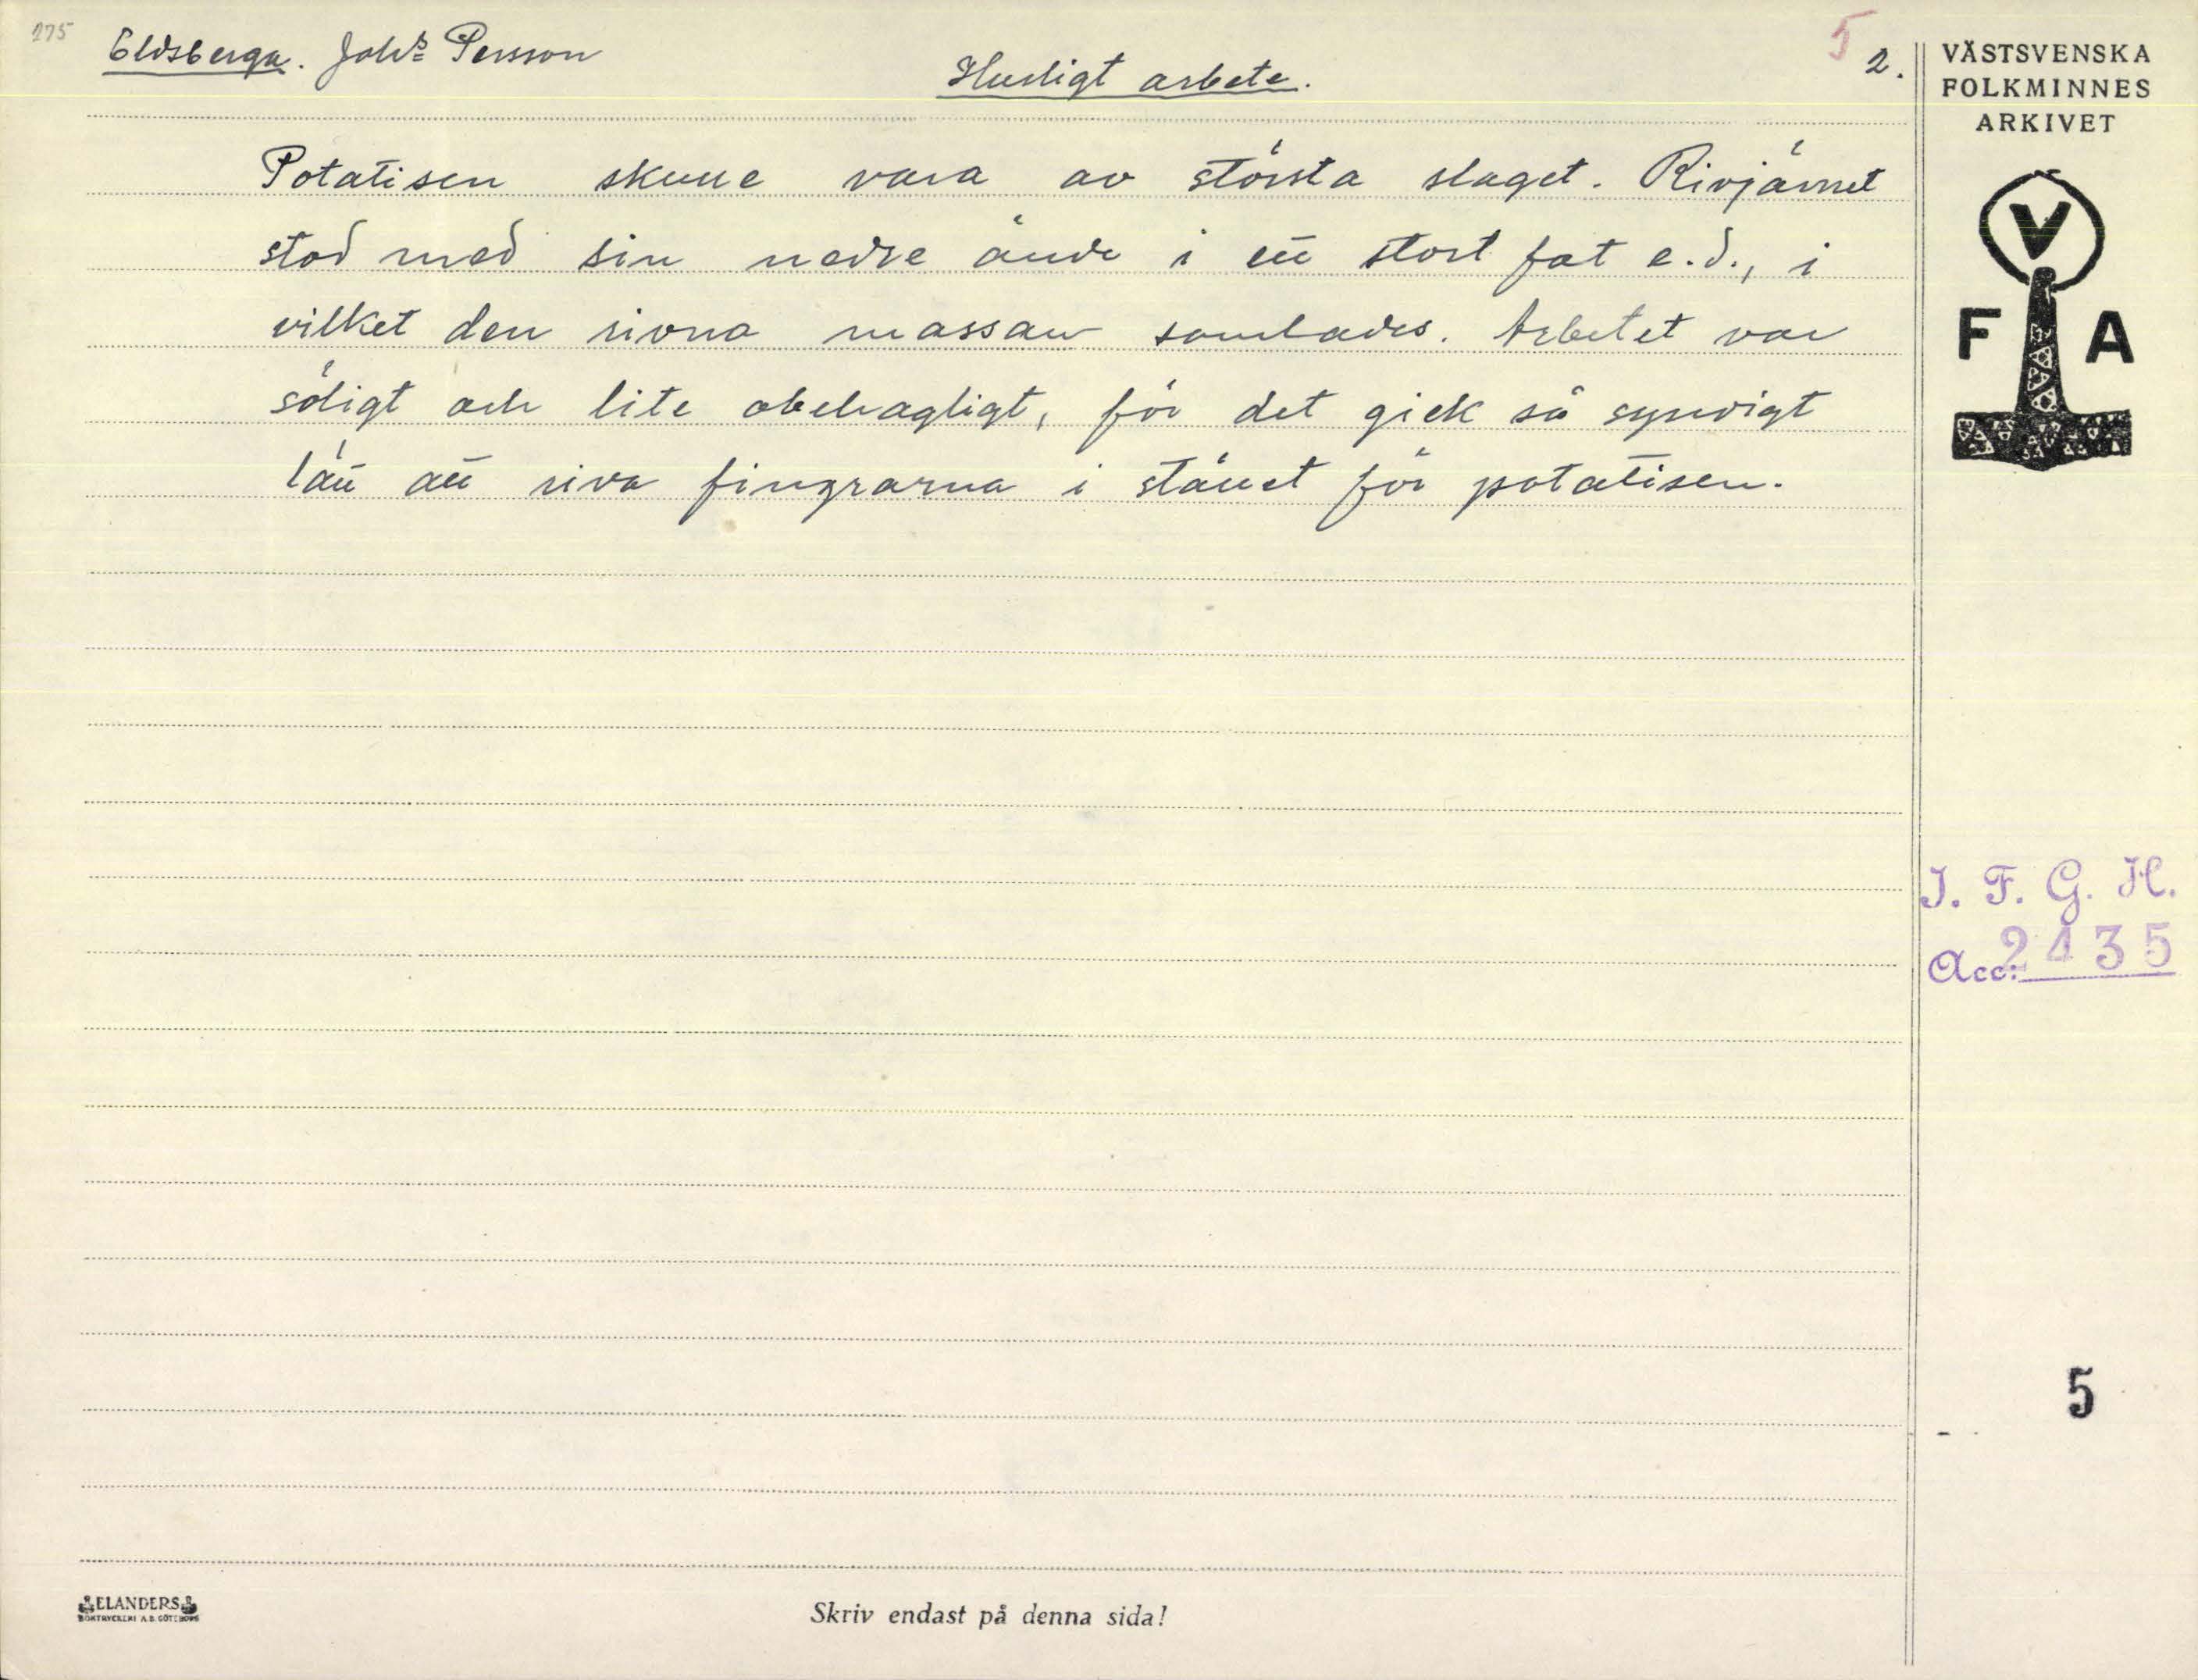 175
Eldsberga. Joh:s Persson
Husligt arbete.
5
2.
VÄSTSVENSKA
FOLKMINNES
ARKIVET
V
F A
Potatisen skulle vara av största slaget. Rivjärnet
stod med sin nedre ände i ett stort fat e.d., i
vilket den rivna massan samlades. Arbetet var
söligt och lite obehagligt, för det gick så syndigt
lätt att riva fingrarna i stället för potatisen.
I. F. G. H.
Acc: 2435
5
ELANDERS
BOKTRYCKERI A.B. GÖTEBORG
Skriv endast på denna sida!